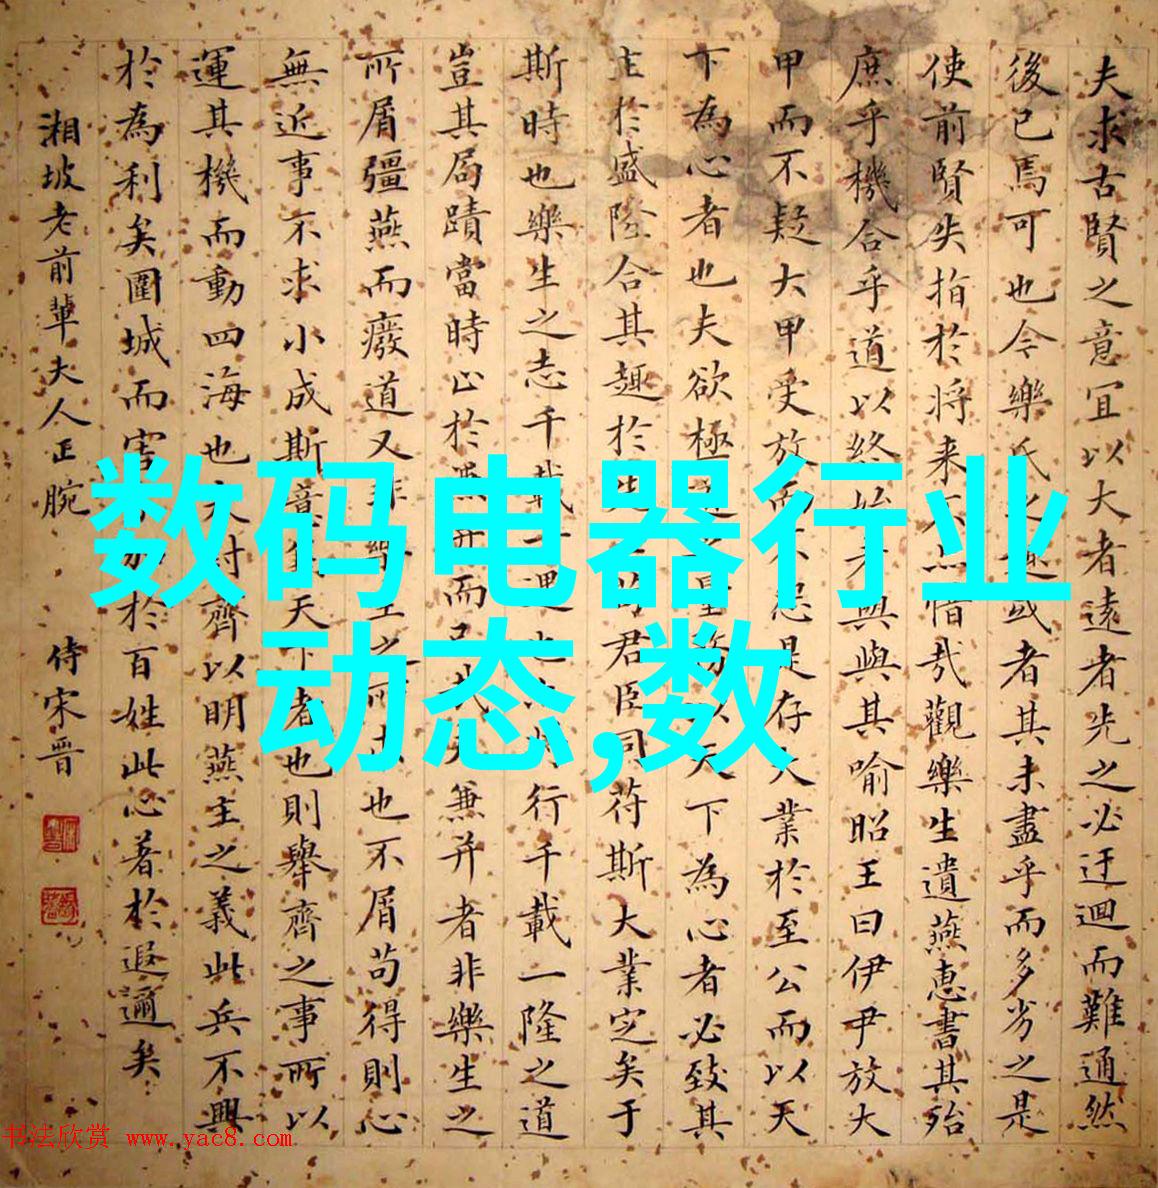 夫求古賢之意宜以大者遠者先之必迂迴而難通然
後已焉可也今樂氏之趣或者其未盡乎而多劣之是
使前賢失指於将来不亦惜哉觀樂生遺燕惠書其殆
庶乎機合乎道以終始者與與其喻昭王曰伊尹放大
甲而不疑大甲受放而不怨是存大業於至公而以天
下為心者也夫欲極道之量務以天下為心者必致其
主於盛隆合其趣於先王苟君臣同符斯大業定矣于
斯時也樂生之志千載一遇也亦将行千載一隆之道
豈其局蹟當時止於兼并而已哉夫兼并者非樂生之
所屑彊燕而廢道又非樂生之所求也不屑苟得則心
無近事不求小成斯意兼天下者也則舉齊之事所以
運其機而動四海也夫討齊以明燕主之義此兵不興
於為利矣圍城而害不加於百姓此心著於遐邇矣
湘坡老前輩夫人正腕
侍宋晋
数码电器行业
动态,数
书法欣赏 www.yac8.com